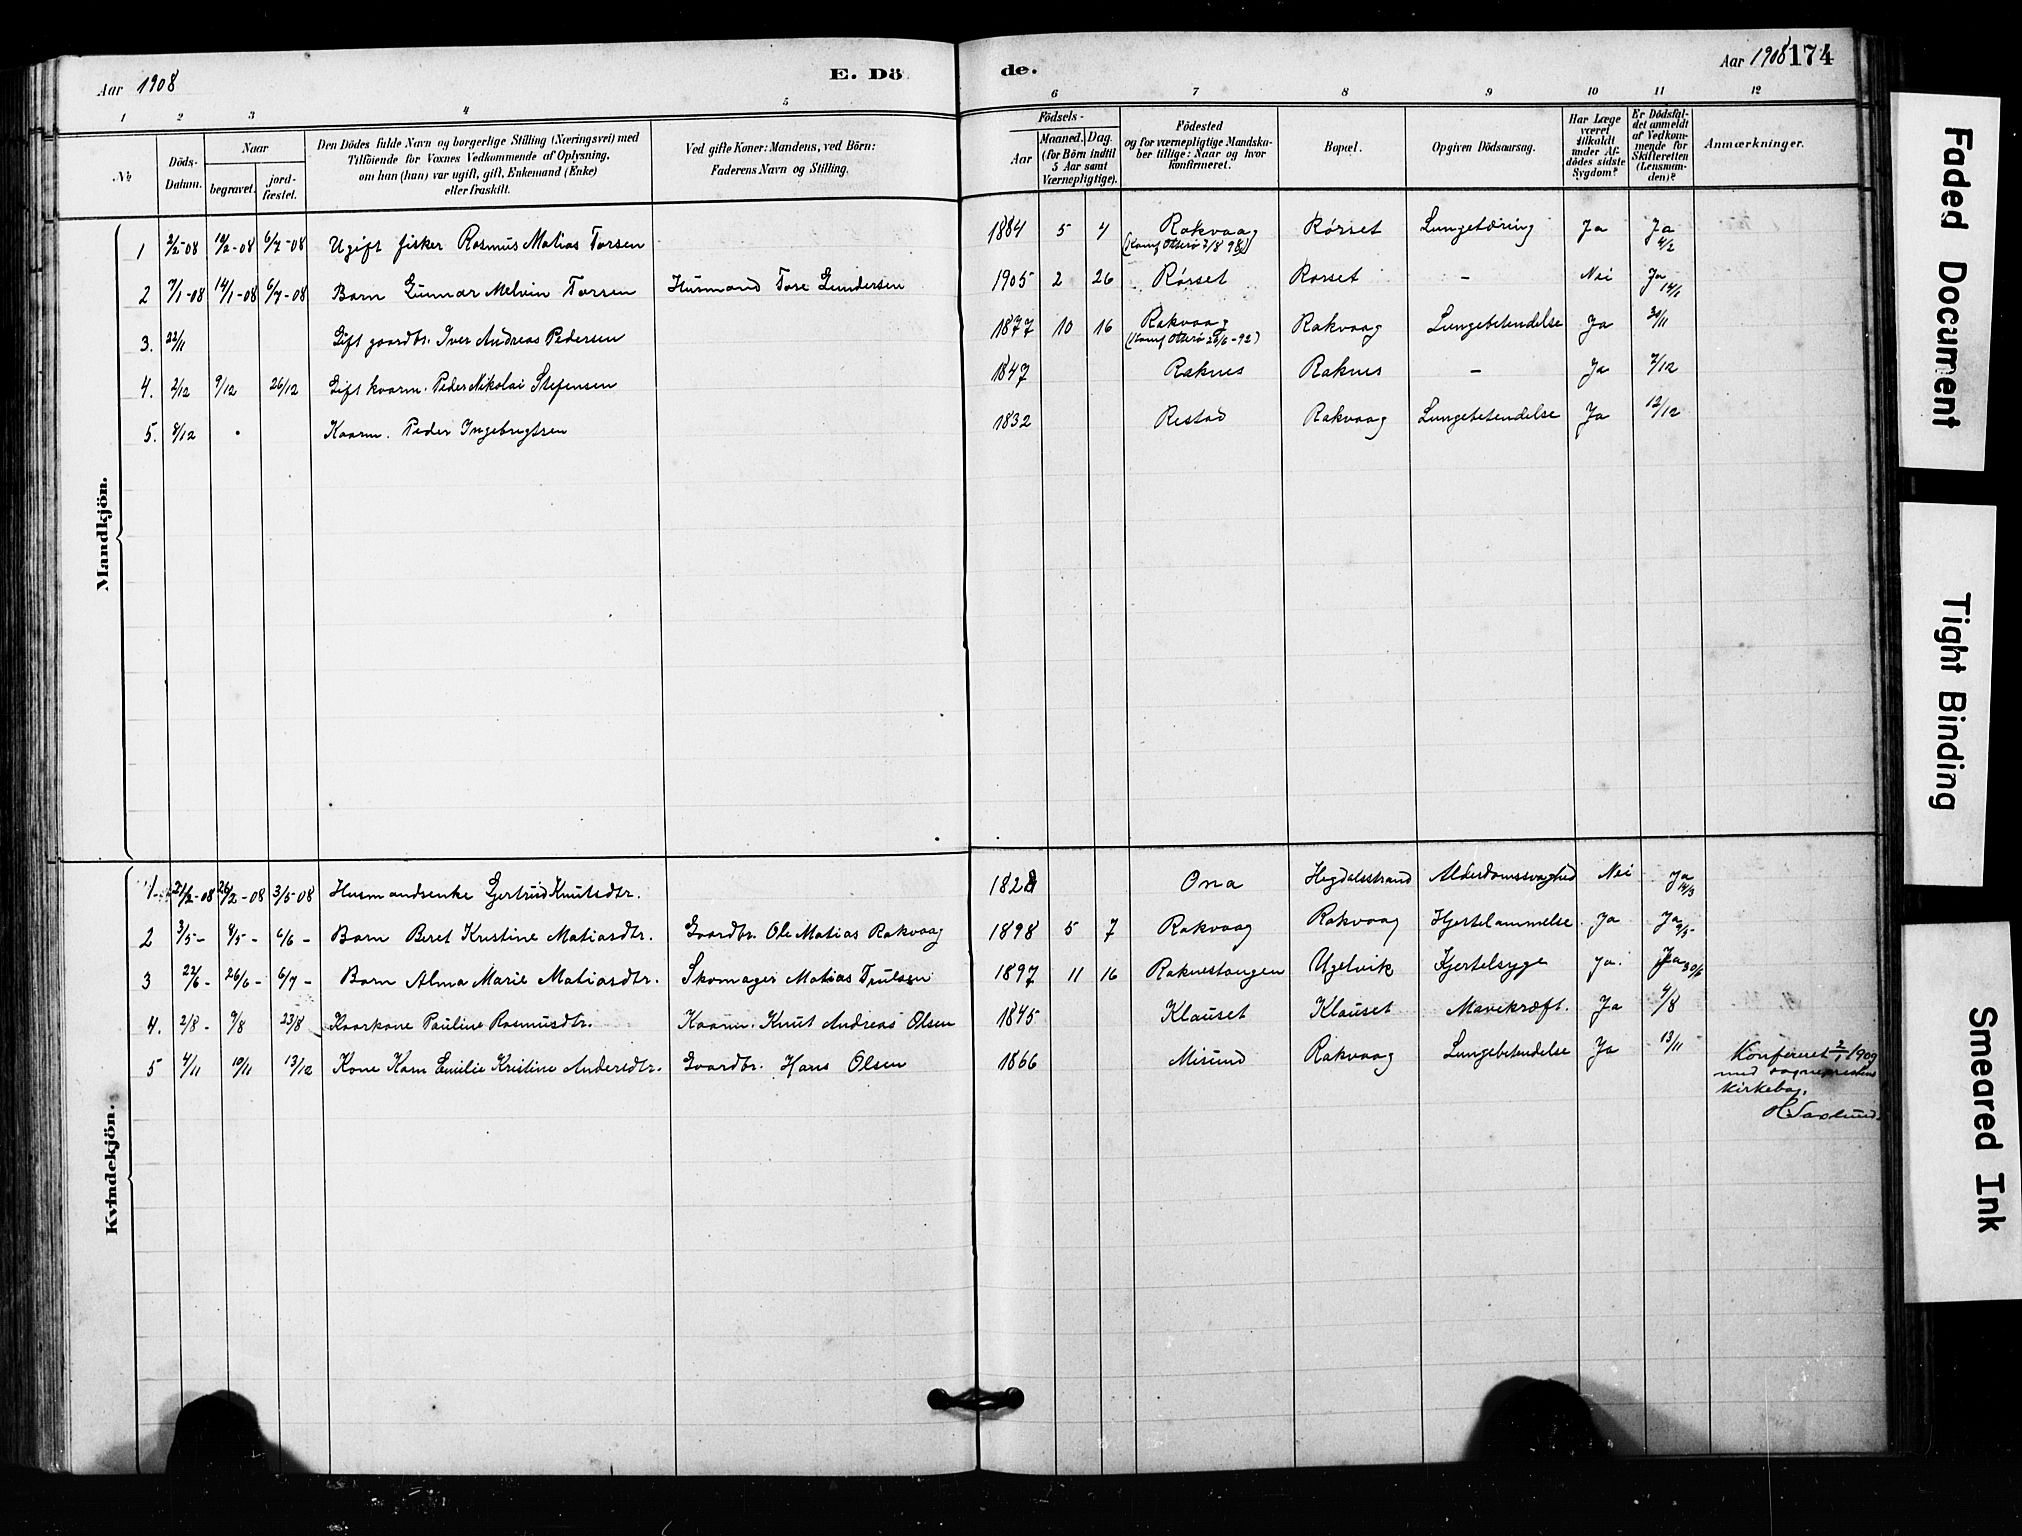 Aar 1908 E. Dö de. Aar 1908 174
1 2 3 4 5 6 7 8 9 10 11 12
№ Döds-Datum. Naar begravet. jord-fæstet. Den Dödes fulde Navn og borgerlige Stilling (Næringsvei) med Tilföiende for Voxnes Vedkommende af Oplysning, om han (hun) var ugift, gift, Enkemand (Enke) eller fraskilt. Ved gifte Koner: Mandens, ved Börn: Faderens Navn og Stilling. Födsels- Aar Maaned. Dag. (for Börn indtil 5 Aar samt Værnepligtige). Födested og for værnepligtige Mandska-ber tillige: Naar og hvor konfirmeret. Bopæl. Opgiven Dödsaarsag. Har Læge været tilkaldt under Af-dödes sidste Sygdom? Er Dödsfal-det anmeldt af Vedkom-mende for Skifteretten (Lensman-den)? Anmærkninger.
Mandkjön.
1 2/2-08 10/2-08 6/7-08 Ugift fisker Rasmus Matias Torsen 1884 5 4 Rakvaag (Konf Otterö 7/8 98) Rörset Lungetæring Ja Ja 4/2
2 7/1-08 14/1-08 6/7-08 Barn Gunnar Melvin Torsen Husmand Tore Gundersen 1905 2 26 Rörset Rorset - Nei Ja 14/1
3. 22/11 Gift gaardbr. Iver Andreas Pedersen 1877 10 16 Rakvaag (Konf Otterö 26/6-92) Rakvaag Lungebetendelse Ja 30/11
4. 2/12 9/12 26/12 Gift kaarm. Peder Nikolai Stefensen 1847 Raknes Raknes - Ja 7/12
5. 8/12 Kaarm. Peder Ingebrigtsen 1832 Restad Rakvaag Lungebetendelse Ja 12/12
Kvindekjön.
1. 21/2-08 26/2-08 3/5-08 Husmandsenke Gjertrud Knutsdtr. 1828 Ona Hegdalsstrand Alderdomssvaghed Nei Ja 14/3
2 3/5- 8/5- 6/6- Barn Beret Kristine Matiasdtr. Gaardbr. Ole Matias Rakvaag 1898 5 7 Rakvaag Rakvaag Hjertelammelse Ja Ja 9/5
3 22/6- 26/6- 6/7- Barn Alma Marie Matiasdtr. Skomager Matias Trulsen 1897 11 16 Raknestangen Ugelvik Kjertelsyge Ja. Ja 30/6
4. 2/8- 9/8 23/8 Kaarkone Pauline Rasmusdtr. Kaarm. Knut Andreas Olsen 1845 Klauset Klauset Mavekræft. Ja 4/8
5 4/11 10/11 13/12 Kone Karn Emilie Kristine Andersdtr. Gaardbr. Hans Olsen 1866 Misund Rakvaag Lungebetendelse Ja 13/11 Konfereret 2/1 1909
med sogneprestens
kirkebog.
H. Saxlund.
Faded Document
Tight Binding
Smeared Ink